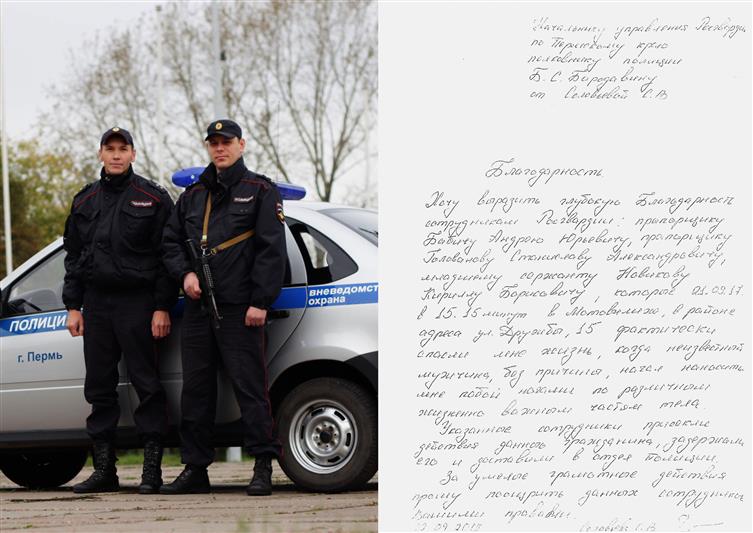 ПОЛИЦИ
г. Пермь
вневедомств
охрана
Начальнику управления Росгварди
по Пермскому краю
полковнику полиции
Б. С. Бородавину
от Соловьевой С.В
Благодарность
Хочу выразить глубокую Благодарность
сотрудникам Росгвардии: прапорщику
Бабичу Андрею Юрьевичу, прапорщику
Голованову Станиславу Александровичу,
младшему сержанту Новикову
Кириллу Борисовичу, которые 01.09.17
в 15.15 минут в Мотовилихе, в районе
адреса ул. Дружбы, 15 фактически
спасли мне жизнь, когда неизвестный
мужчина, без причины, начал наносить
мне побой ногами по различным
жизненно важным частям тела.
Указанные сотрудники пресекли
действия данного гражданина, задержали
его и доставили в отдел полиции.
За умелое грамотные действия
прошу поощрить данных сотруднико
Вашими правами.
Соловьев С.В